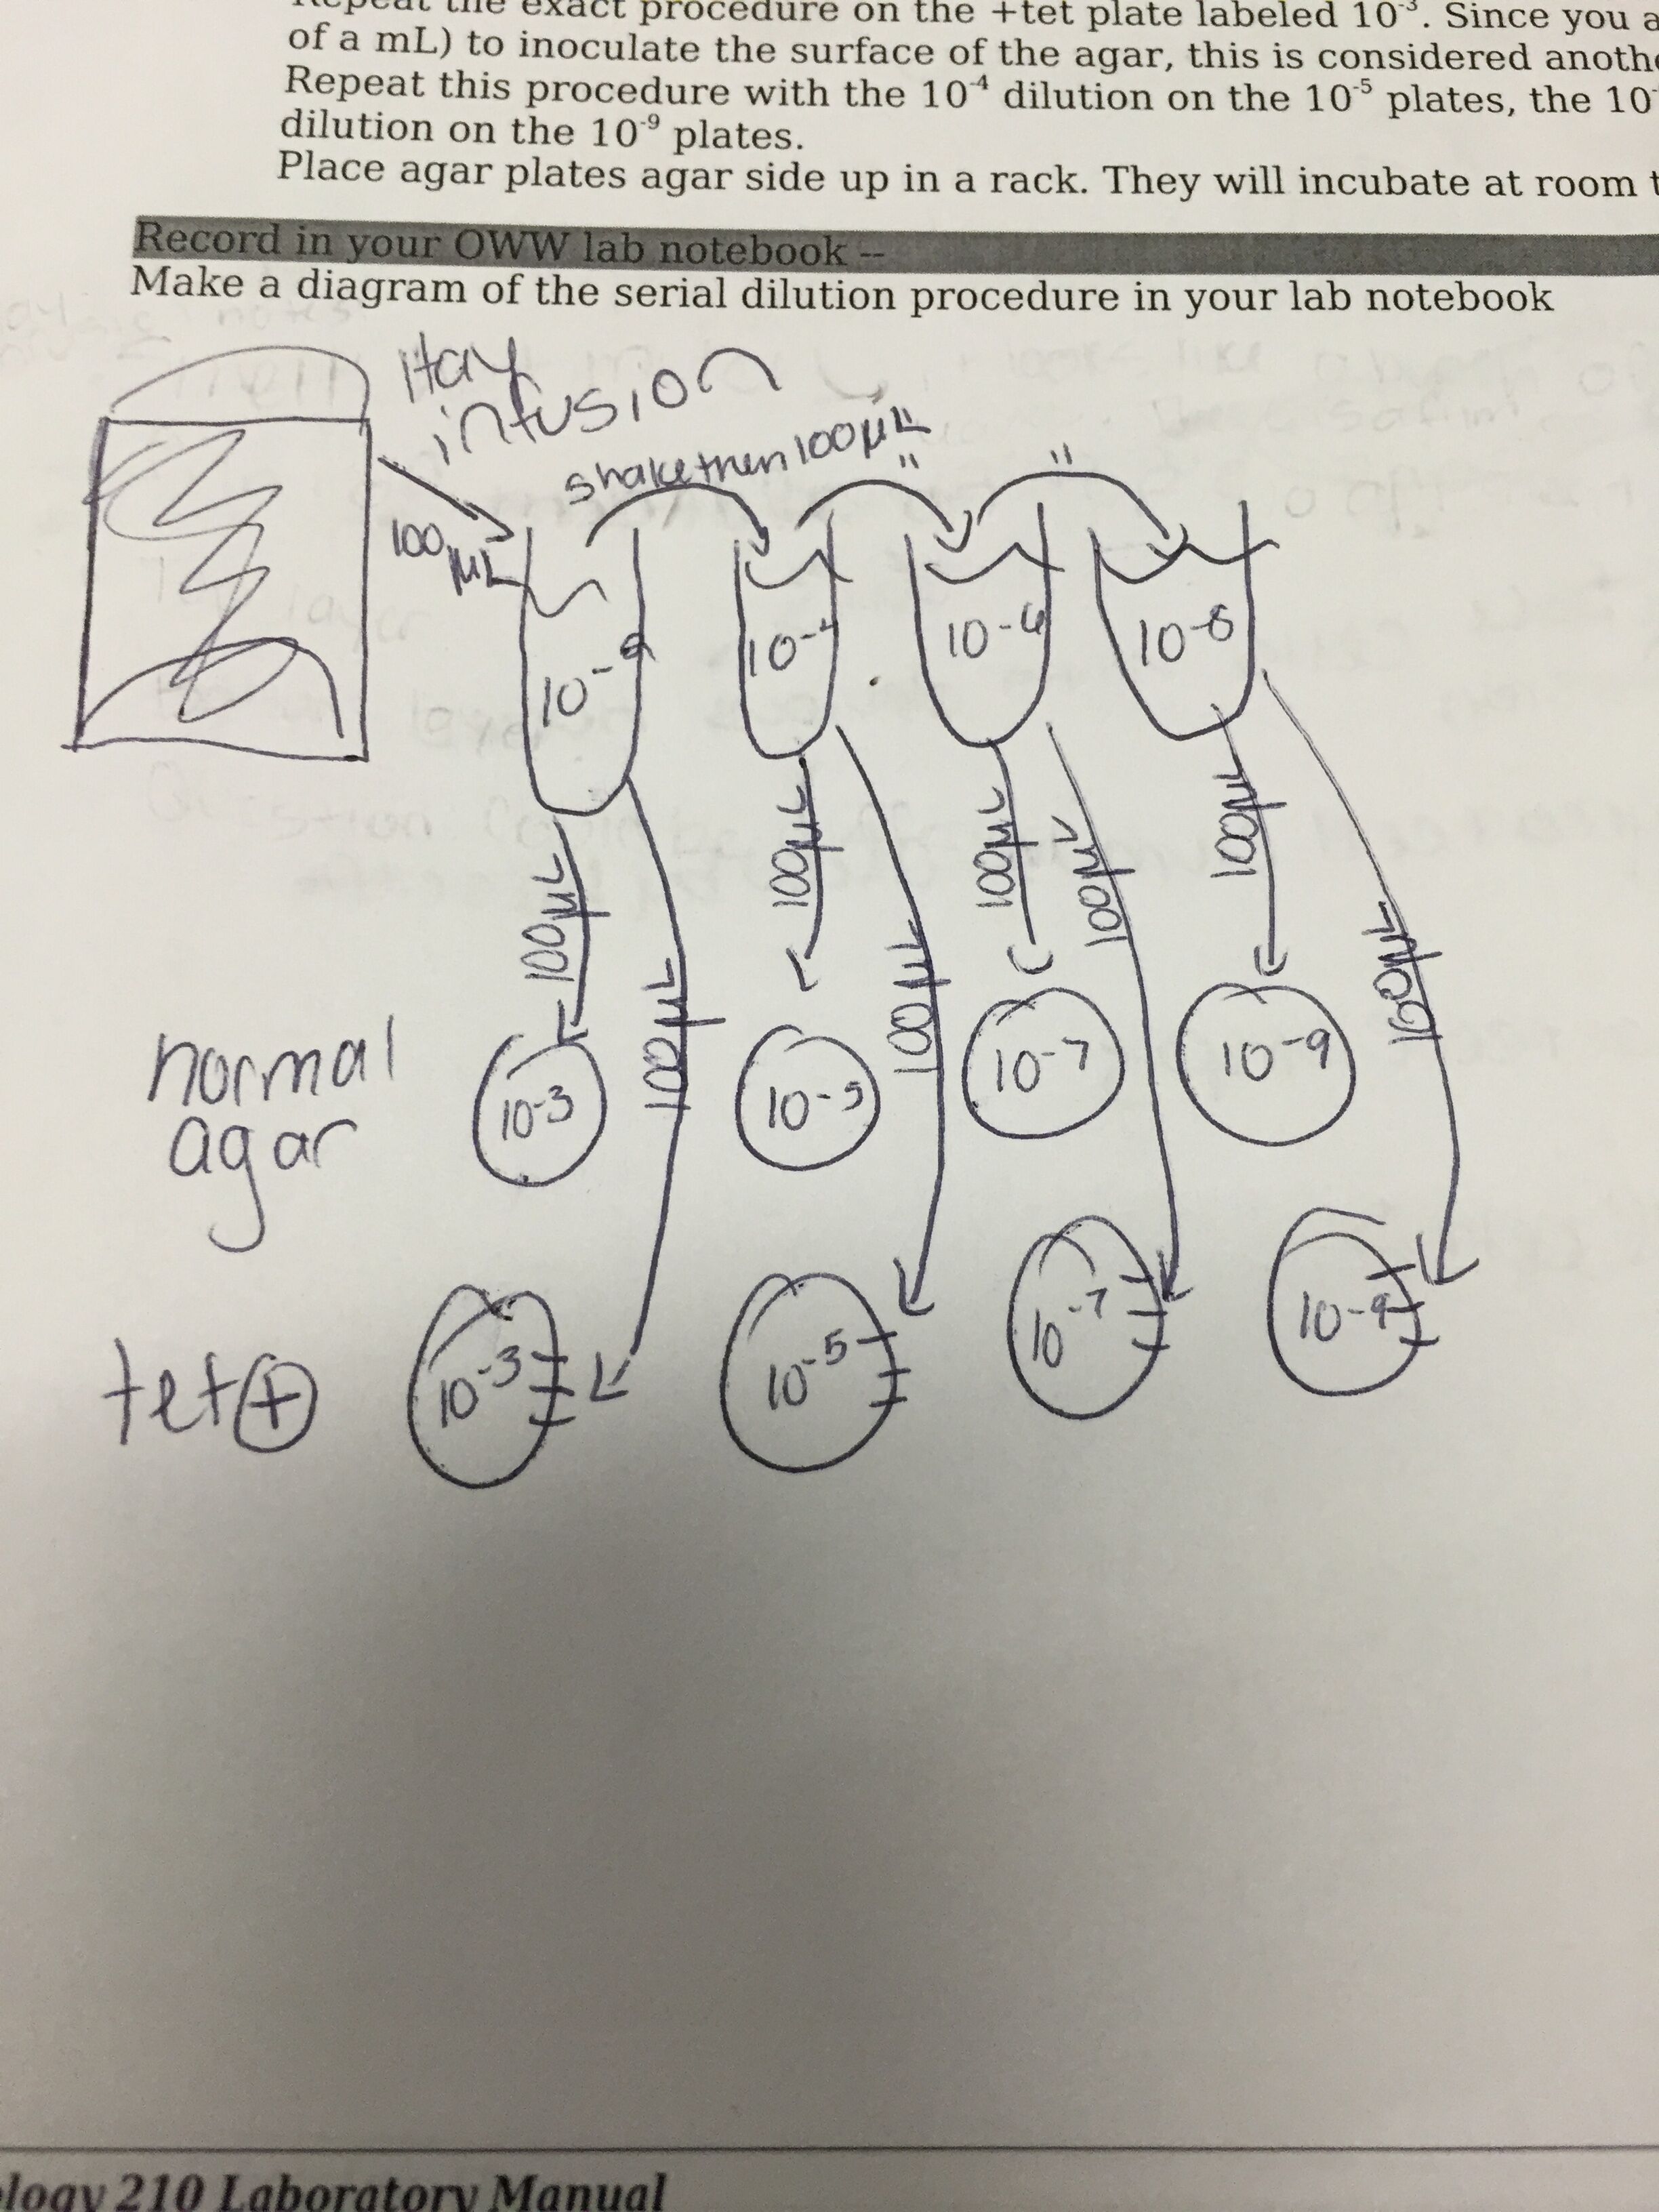 Repeat the exact procedure on the +tet plate labeled 10⁻³. Since you a
of a mL) to inoculate the surface of the agar, this is considered anoth
Repeat this procedure with the 10⁻⁴ dilution on the 10⁻⁵ plates, the 10⁻
dilution on the 10⁻⁹ plates.
Place agar plates agar side up in a rack. They will incubate at room t
Record in your OWW lab notebook --
Make a diagram of the serial dilution procedure in your lab notebook
Hay
infusion
shake then 100 µL
" "
100
µL
10⁻⁶
100 µL 100 µL 100 µL 100 µL
100 µL 100 µL 100 µL 100 µL
normal
agar
10⁻³ 10⁻⁵ 10⁻⁷ 10⁻⁹
tet +
10⁻³ 10⁻⁵ 10⁻⁷ 10⁻⁹
ology 210 Laboratory Manual